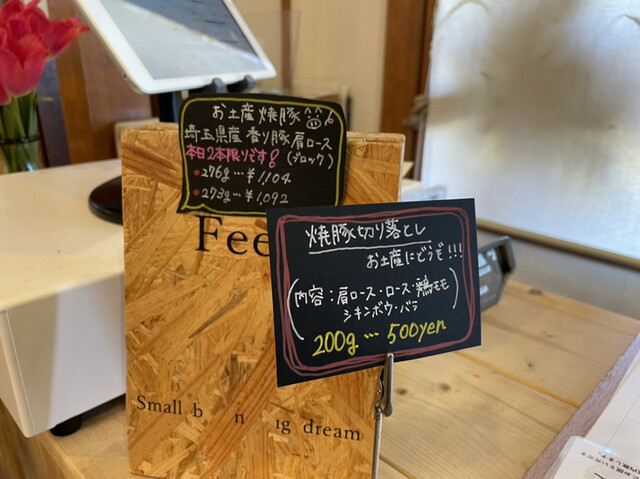 お土産焼豚
埼玉県産 香り豚肩ロース
本日2本限りです! (ブロック)
・276g…¥1,104
・273g…¥1,092
Fee
焼豚切り落とし
お土産にどうぞ!!!
(内容:肩ロース・ロース・鶏モモ
シキンボウ・バラ)
200g … 500yen
Small b n ıg dream